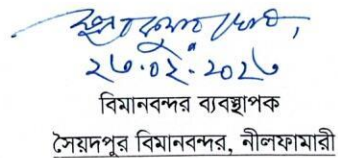 ২৩.০২.২০২৩
বিমানবন্দর ব্যবস্থাপক
সৈয়দপুর বিমানবন্দর, নীলফামারী